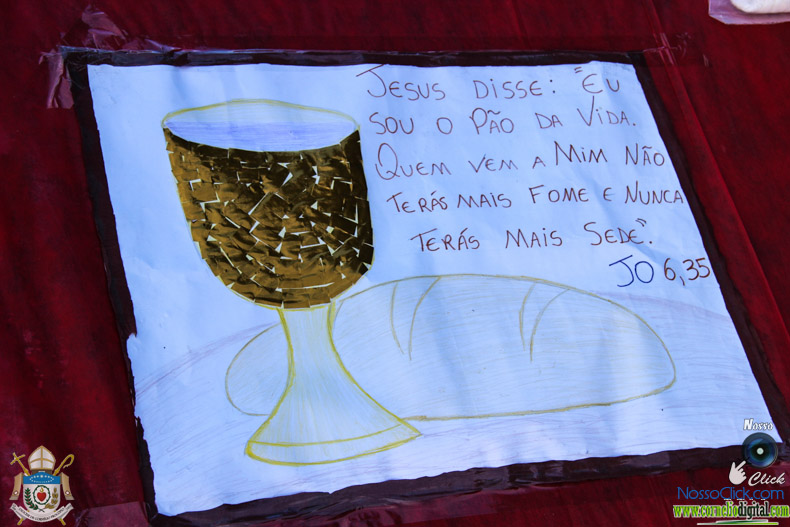 JESUS DISSE: "EU
SOU O PÃO DA VIDA.
QUEM VEM A MIM NÃO
TERÁS MAIS FOME E NUNCA
TERÁS MAIS SEDE".
JO 6,35
Nosso
Click
NossoClick.com
www.corneliodigital.com